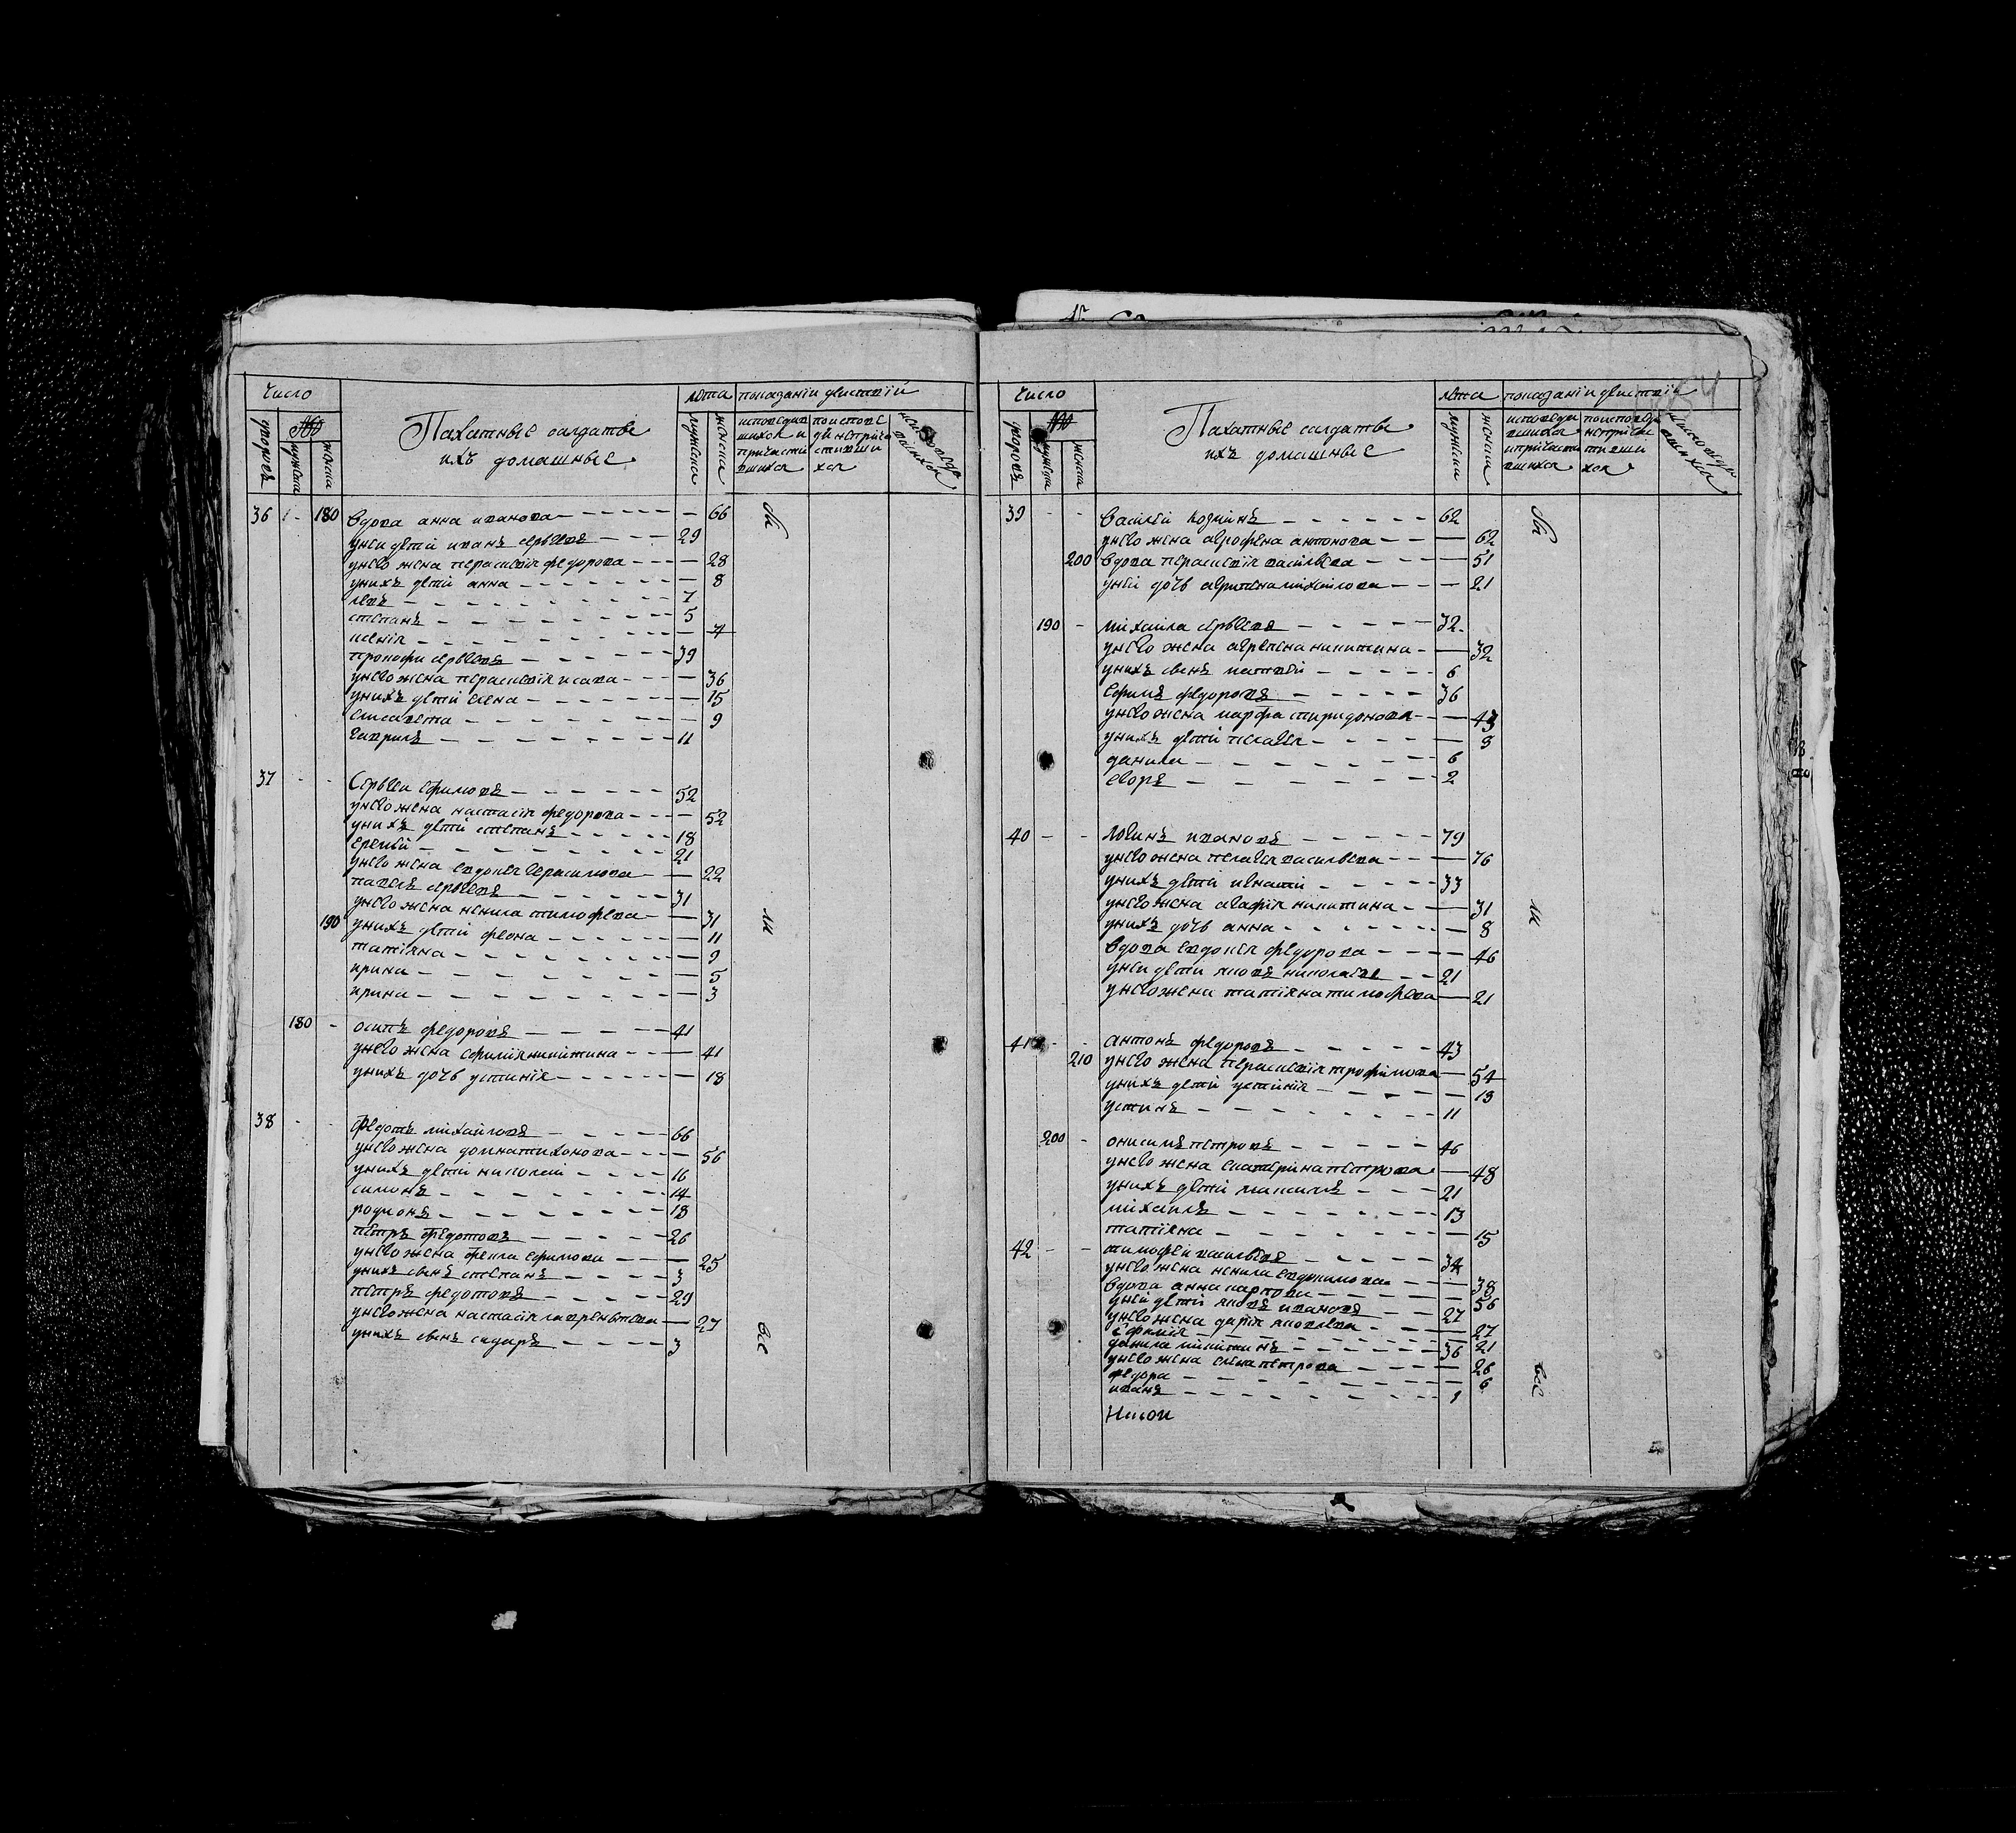 Число
лѣта показаніи дѣиствіи
дворовъ
мужска
женска
Пахатные салдаты
ихъ домашные
мужска
женска
исповедав
шихся и
причасти
вшихся
поисповѣ
ди неприча
стивши
хся
36 - 180 вдова анна иванова - 66
унеи дѣти иванъ сергѣевъ 29
унево жена параскевия федорова - 28
унихъ дѣти анна - 8
левъ 7
степанъ 5
ксения - 4
прокофи сергѣевъ 39
унево жена параскевия исаева - 36
унихъ дѣти елена - 15
елисавета - 9
гаврилъ 11
37 - - Сергѣи ефимовъ 52
унево жена настасия федорова - 52
унихъ дѣти степанъ 18
еремѣй 21
унево жена евдокея герасимова - 22
павелъ сергѣевъ 31
унево жена ненила тимофѣева - 31
190 унихъ дѣтй феона - 11
татияна - 9
ирина - 5
ирина - 3
180 - осипъ федоровъ 41
унево жена ефимия никитина - 41
унихъ дочь устиния - 18
38 - - Федотъ михаиловъ 66
унево жена домна тихонова - 56
унихъ дѣти николай 16
симонъ 14
родионъ 18
петръ федотовъ 26
унево жена фекла ефимова - 25
унихъ сынъ степанъ 3
петръ федотовъ 29
унево жена настасия лаврентьева - 27
унихъ сынъ сидаръ 3
Число
лѣта показаніи дѣиствіи
дворовъ
мужска
женска
Пахатные салдаты
ихъ домашные
мужска
женска
39 - - василий козминъ 62
унево жена агрофена антонова - 62
200 вдова параскевия василева - 51
уней дочь агрипена михаилова - 21
190 - михаила сергѣевъ 32
унево жена агрепена никитина - 32
унихъ сынъ матвѣй 6
ефимъ федоровъ 36
унево жена марфа спиридонова - 43
унихъ дѣти пелагея - 9
данила 6
егоръ 2
40 - - логинъ ивановъ 79
унево жена пелагея василѣева - 76
унихъ дѣти игнатй 33
унево жена агафия никитина - 31
унихъ дочь анна - 8
вдова евдокея федорова - 46
унеи дѣти яковъ николаевъ 21
унево жена татияна тимофѣева - 21
41 - - антонъ федоровъ 43
210 унево жена параскевия трофимова - 54
унихъ дѣтй устиния - 13
устинъ 11
200 - онисимъ петровъ 46
унево жена екатерина петрова - 48
унихъ дѣти максимъ 21
михаилъ 13
татияна - 15
42 - - тимофѣи василѣевъ 34
унево жена ненила евдокимова - 38
вдова анна карпова - 56
унеи дѣти яковъ ивановъ 27
унево жена дария яковлева - 27
ефимия - 21
данила никитинъ 36
унево жена елена петрова - 26
федора - 6
иванъ 1